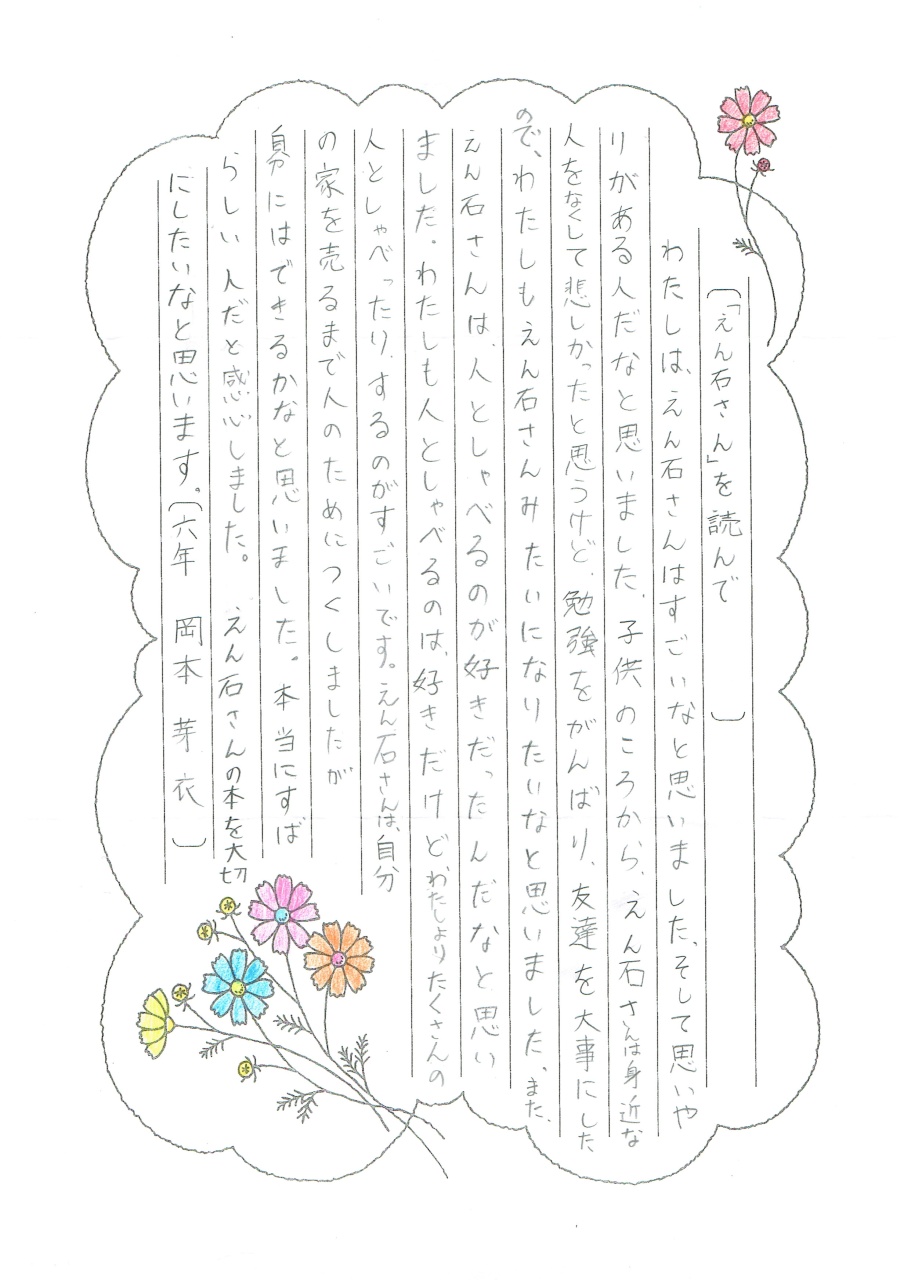 〔「えん石さん」を読んで　〕
わたしは、えん石さんはすごいなと思いました。そして思いや
りがある人だなと思いました。子供のころから、えん石さんは身近な
人をなくして悲しかったと思うけど、勉強をがんばり、友達を大事にした
ので、わたしもえん石さんみたいになりたいなと思いました。また、
えん石さんは、人としゃべるのが好きだったんだなと思い
ました。わたしも人としゃべるのは、好きだけどわたしよりたくさんの
人としゃべったり、するのがすごいです。えん石さんは、自分
の家を売るまで人のためにつくしましたが
自分にはできるかなと思いました。本当にすば
らしい人だと感心しました。　えん石さんの本を大切
にしたいなと思います。〔六年　岡本　芽衣　〕